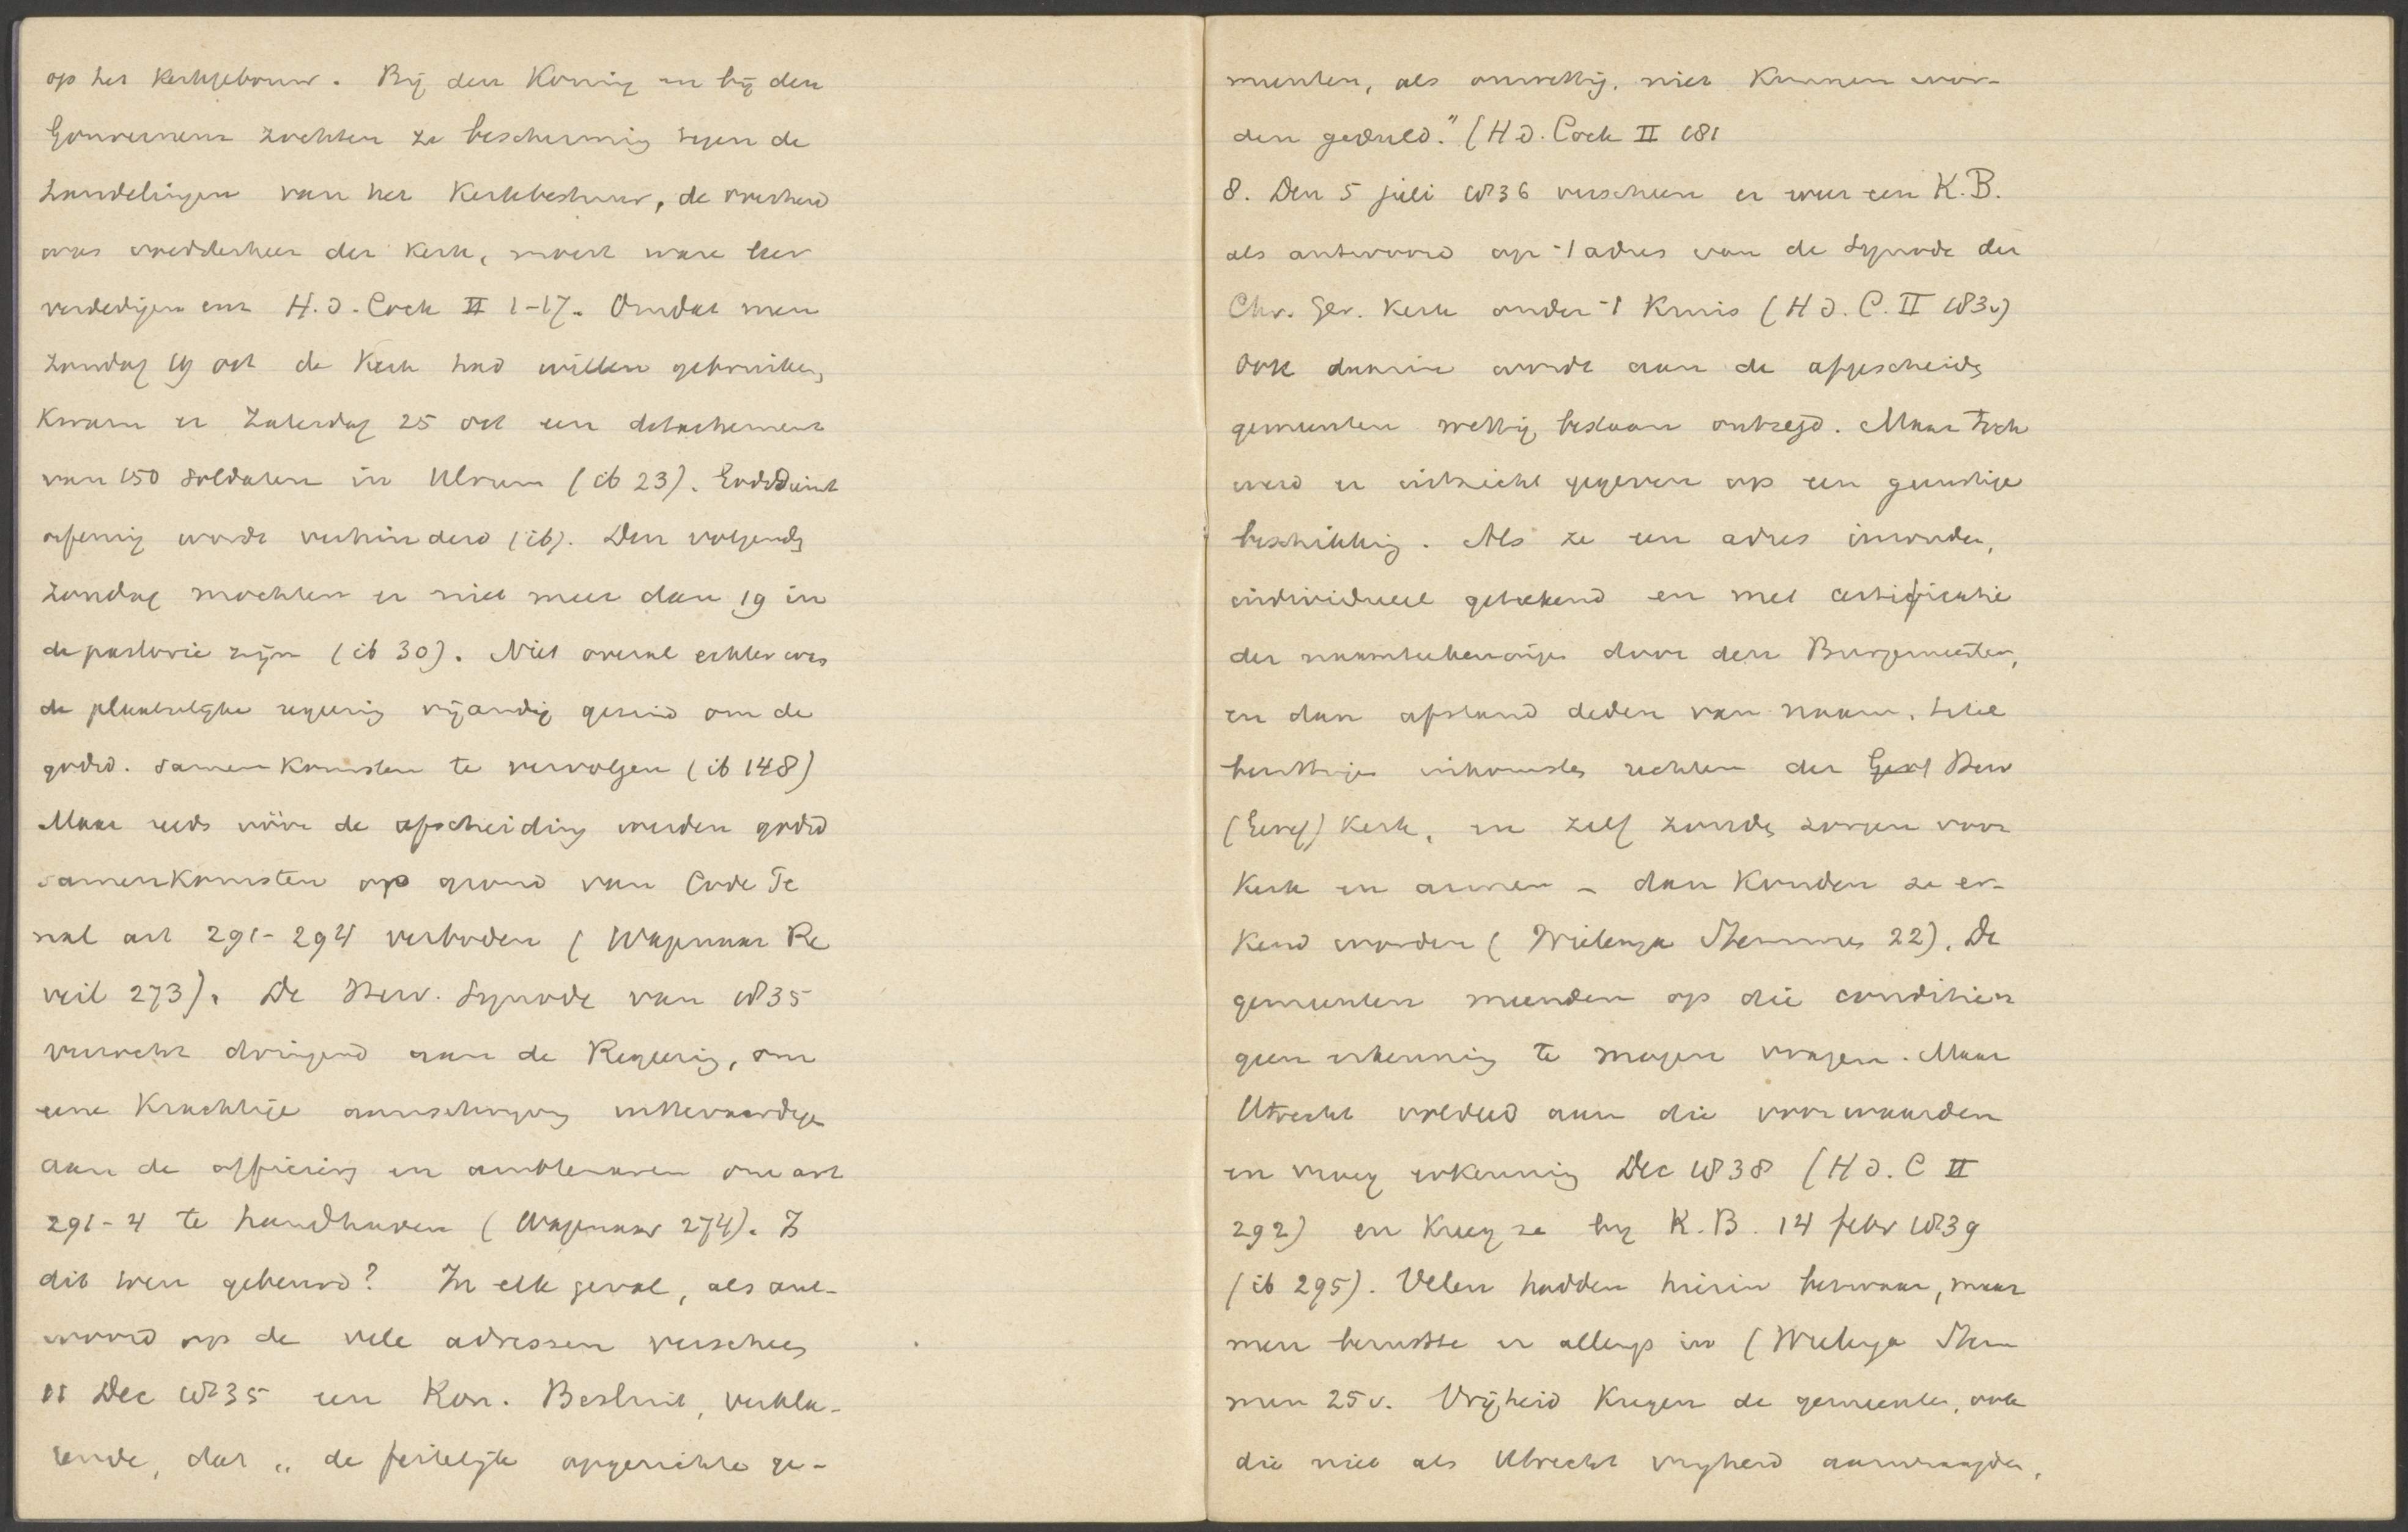 op het Kerkgebouw. Bij den Koning en bij den
Gouverneur zochten ze bescherming tegen de
handelingen van het Kerkbestuur, de overheid
was opperheer der Kerk, moest ware leer
verdedigen enz H. d. Cock II 1-17. Omdat men
Zondag 19 oct de Kerk had willen gebruiken,
Kwam er Zaterdag 25 oct een detachement
van 150 soldaten in Ulrum (ib 23). Godsdienst
oefening wordt verhinderd (ib). Den volgenden
Zondag mochten er niet meer dan 19 in
de pastorie zijn (ib 30). Niet overal echter was
de plaatselijke regering vijandig gezind om de
godsd. samenkomsten te vervolgen (ib 148)
Maar reeds vóór de afscheiding werden godsd
samenkomsten op grond van Code Pe
nal art 291-294 verboden (Wagenaar Re
veil 273). De Herv. Synode van 1835
verzocht dringend aan de Regering, om
eene Krachtige aanschrijving uittevaardigen
aan de officieren en ambtenaren om art
291-4 te handhaven (Wagenaar 274). Is
dit toen gebeurd? In elk geval, als ant-
woord op de vele adressen verscheen
11 Dec 1835 een Kon. Besluit, verkla-
rende, dat „de feitelijk opgerichte ge-
meenten, als onwettig, niet Kunnen wor-
den geduld." (H d. Cock II 181
8. Den 5 juli 1836 verscheen er weer een K.B.
als antwoord op -t adres van de Synode der
Chr. Ger. Kerk onder -t Kruis (H d. C. II 183v)
Ook daarin wordt aan de afgescheiden
gemeenten wettig bestaan ontzegd. Maar toch
werd er uitzicht gegeven op een gunstige
beschikking. Als ze een adres inzonden,
individueel getekend en met certificatie
der naamtekeningen door den Burgemeester,
en dan afstand deden van naam, titel
bezittingen inkomsten rechten der Geref Herv
(Geref) Kerk, en zelf zouden zorgen voor
Kerk en armen - dan Konden ze er-
Kend worden (Wielenga Stemmen 22). De
gemeenten meenden op die condities
geen erkenning te mogen vragen. Maar
Utrecht voldeed aan die voorwaarden
en vroeg erkenning Dec 1838 (H d. C II
292) en Kreeg ze bij K.B. 14 febr 1839
(ib 295). Velen hadden hierin bezwaar, maar
men berustte er allengs in (Wielenga Stem
men 25v. Vrijheid Kregen de gemeenten, ook
die niet als Utrecht vrijheid aanvraagden,